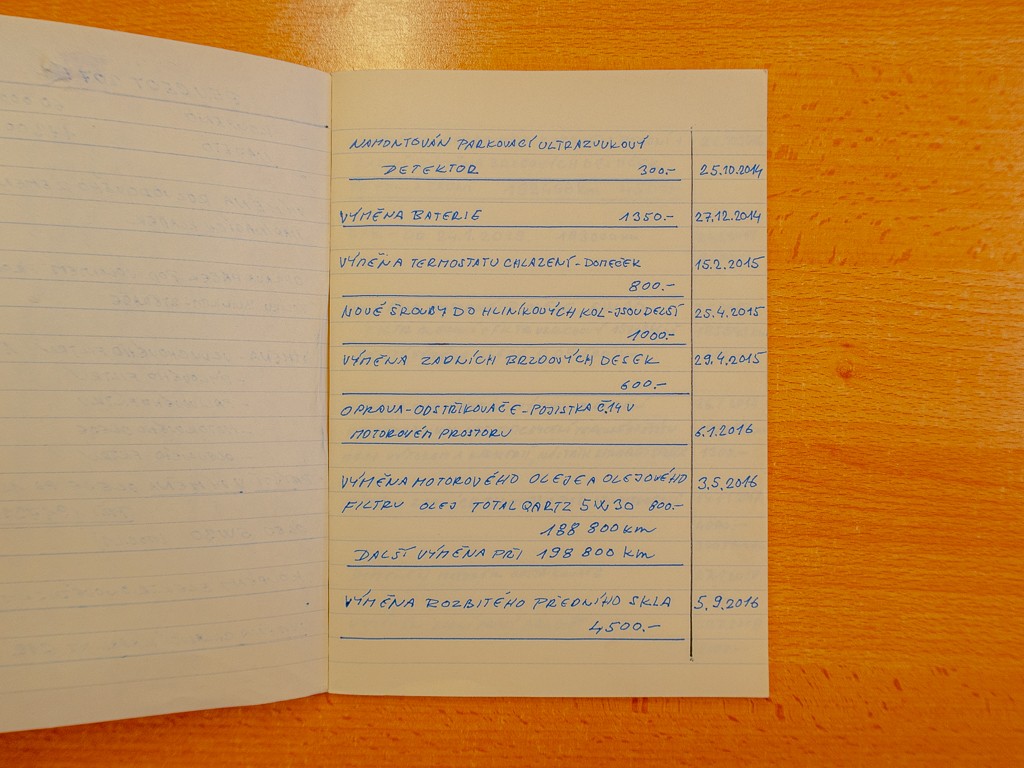 NAMONTOVÁN PARKOVACÍ ULTRAZVUKOVÝ
DETEKTOR 300.- 25.10.2014
VÝMĚNA BATERIE 1350.- 27.12.2014
VÝMĚNA TERMOSTATU CHLAZENÍ - DOMEČEK 15.2.2015
800.-
NOVÉ ŠROUBY DO HLINÍKOVÝCH KOL - JSOU DELŠÍ 25.4.2015
1000.-
VÝMĚNA ZADNÍCH BRZDOVÝCH DESEK 29.4.2015
600.-
OPRAVA - ODSTŘIKOVAČE - POJISTKA Č.14 V
MOTOROVÉM PROSTORU 6.1.2016
VÝMĚNA MOTOROVÉHO OLEJE A OLEJOVÉHO 3.5.2016
FILTRU OLEJ TOTAL QARTZ 5W30 800.-
188 800 km
DALŠÍ VÝMĚNA PŘI 198 800 km
VÝMĚNA ROZBITÉHO PŘEDNÍHO SKLA 5.9.2016
4500.-